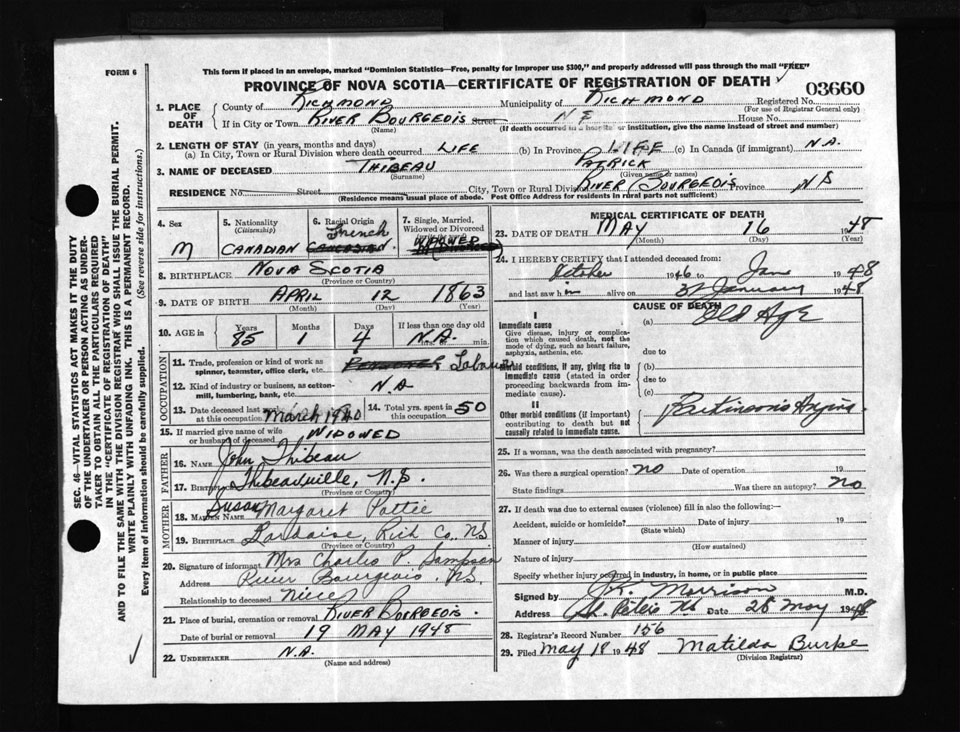 FORM 6
This form if placed in an envelope, marked "Dominion Statistics—Free, penalty for improper use $300," and properly addressed will pass through the mail "FREE"
PROVINCE OF NOVA SCOTIA—CERTIFICATE OF REGISTRATION OF DEATH
03660
1. PLACE OF DEATH
County of RICHMOND Municipality of RICHMOND Registered No.
(For use of Registrar General only)
If in City or Town RIVER BOURGEOIS Street House No.
(Name) (If death occurred in a hospital or institution, give the name instead of street and number)
2. LENGTH OF STAY (in years, months and days)
(a) In City, Town or Rural Division where death occurred LIFE (b) In Province LIFE (c) In Canada (if immigrant) N.A.
3. NAME OF DECEASED THIBEAU PATRICK
(Surname) (Given name or names)
RESIDENCE No. Street City, Town or Rural Division RIVER BOURGEOIS Province NS
(Residence means usual place of abode. Post Office Address for residents in rural parts not sufficient)
4. Sex M
5. Nationality (Citizenship) CANADIAN
6. Racial Origin French
7. Single, Married, Widowed or Divorced WIDOWED
8. BIRTHPLACE NOVA SCOTIA
(Province or Country)
9. DATE OF BIRTH APRIL 12 1863
(Month) (Day) (Year)
10. AGE in Years Months Days If less than one day old
85 1 4 N.A. min.
OCCUPATION
11. Trade, profession or kind of work as spinner, teamster, office clerk, etc.
12. Kind of industry or business, as cotton-mill, lumbering, bank, etc. NA
13. Date deceased last worked at this occupation March 1940
14. Total yrs. spent in this occupation 50
15. If married give name of wife or husband of deceased WIDOWED
FATHER
16. NAME John Thibeau
17. Thibeauville, N.S.
(Province or Country)
MOTHER
18. MAIDEN NAME Susan Margaret Pottie
19. BIRTHPLACE Lardoise, Rich Co., NS
(Province or Country)
20. Signature of informant Mrs Charles P. Sampson
Address River Bourgeois, NS.
Relationship to deceased niece
21. Place of burial, cremation or removal RIVER BORGEOIS.
Date of burial or removal 19 MAY 1948
22. UNDERTAKER N.A.
(Name and address)
MEDICAL CERTIFICATE OF DEATH
23. DATE OF DEATH MAY 16 1948
(Month) (Day) (Year)
24. I HEREBY CERTIFY that I attended deceased from:
October 1946 to Jan 1948
and last saw him alive on 31 January 1948
CAUSE OF DEATH
I
Immediate cause
Give disease, injury or complication which caused death, not the mode of dying, such as heart failure, asphyxia, asthenia, etc.
(a) Old Age
due to
Morbid conditions, if any, giving rise to immediate cause (stated in order proceeding backwards from immediate cause).
(b)
due to
(c)
II
Other morbid conditions (if important) contributing to death but not causally related to immediate cause.
25. If a woman, was the death associated with pregnancy?
26. Was there a surgical operation? no Date of operation 19
State findings Was there an autopsy? no
27. If death was due to external causes (violence) fill in also the following:—
Accident, suicide or homicide? Date of injury 19
(State which)
Manner of injury
(How sustained)
Nature of injury
Specify whether injury occurred in industry, in home, or in public place
Signed by J.K. Morrison M.D.
Address St. Peters NS Date 25 May 1948
28. Registrar's Record Number 156
29. Filed May 18 1948 Matilda Burke
(Division Registrar)
SEC. 46—VITAL STATISTICS ACT MAKES IT THE DUTY
OF THE UNDERTAKER OR PERSON ACTING AS UNDERTAKER TO OBTAIN ALL THE PARTICULARS REQUIRED
IN THE "CERTIFICATE OF REGISTRATION OF DEATH"
AND TO FILE THE SAME WITH THE DIVISION REGISTRAR WHO SHALL ISSUE THE BURIAL PERMIT.
WRITE PLAINLY WITH UNFADING INK. THIS IS A PERMANENT RECORD.
Every item of information should be carefully supplied. (See reverse side for instructions.)